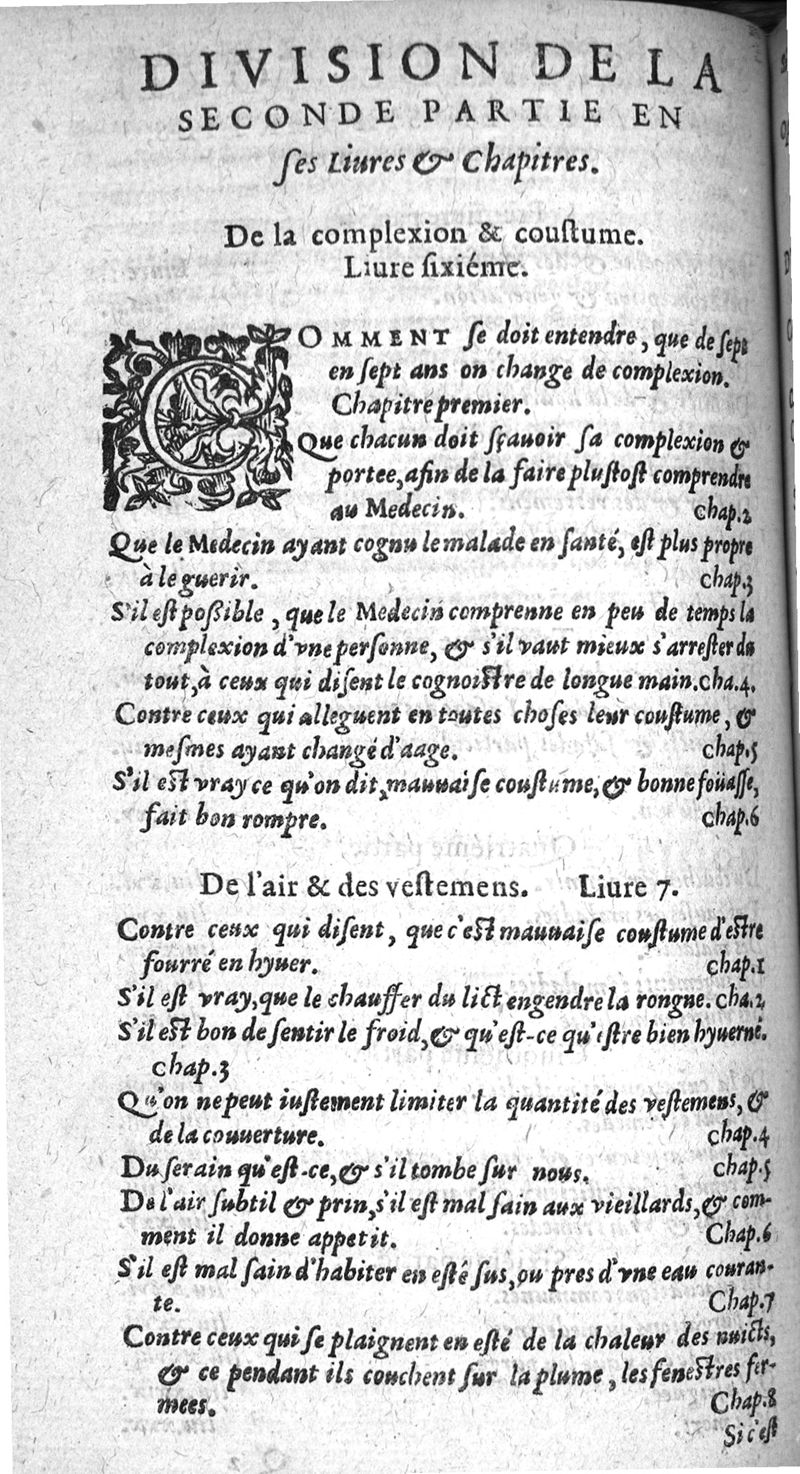 DIVISION DE LA
SECONDE PARTIE EN
ſes Liures & Chapitres.
De la complexion & couſtume.
Liure ſixiéme.
COMMENT ſe doit entendre, que de ſept
en ſept ans on change de complexion.
Chapitre premier.
Que chacun doit ſçauoir ſa complexion &
portee, afin de la faire pluſtoſt comprendre
au Medecin. chap.2
Que le Medecin ayant cognu le malade en ſanté, eſt plus propre
à le guerir. chap.3
S'il eſt poßible, que le Medecin comprenne en peu de temps la
complexion d'vne perſonne, & s'il vaut mieux s'arreſter du
tout, à ceux qui diſent le cognoiſtre de longue main. cha.4.
Contre ceux qui alleguent en toutes choſes leur couſtume, &
meſmes ayant changé d'aage. chap.5
S'il eſt vray ce qu'on dit, mauuaiſe couſtume, & bonne foüaſſe,
fait bon rompre. chap.6
De l'air & des veſtemens. Liure 7.
Contre ceux qui diſent, que c'eſt mauuaiſe couſtume d'eſtre
fourré en hyuer. chap.1
S'il eſt vray, que le chauffer du lict engendre la rongne. cha.2
S'il eſt bon de ſentir le froid, & qu'eſt-ce qu'eſtre bien hyuerné.
chap.3
Qu'on ne peut iuſtement limiter la quantité des veſtemens, &
de la couuerture. chap.4
Du ſerain qu'eſt-ce, & s'il tombe ſur nous. chap.5
De l'air ſubtil & prin, s'il eſt mal ſain aux vieillards, & com-
ment il donne appetit. Chap.6
S'il eſt mal ſain d'habiter en eſté ſus, ou pres d'vne eau couran-
te. Chap.7
Contre ceux qui ſe plaignent en eſté de la chaleur des nuicts,
& ce pendant ils couchent ſur la plume, les feneſtres fer-
mees. Chap.8
Si c'eſt